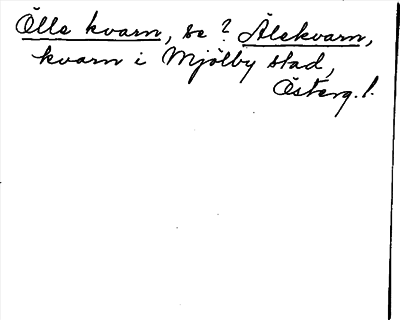 Ölle kvarn, se? Älekvarn,
kvarn i Mjölby stad,
Österg. l.